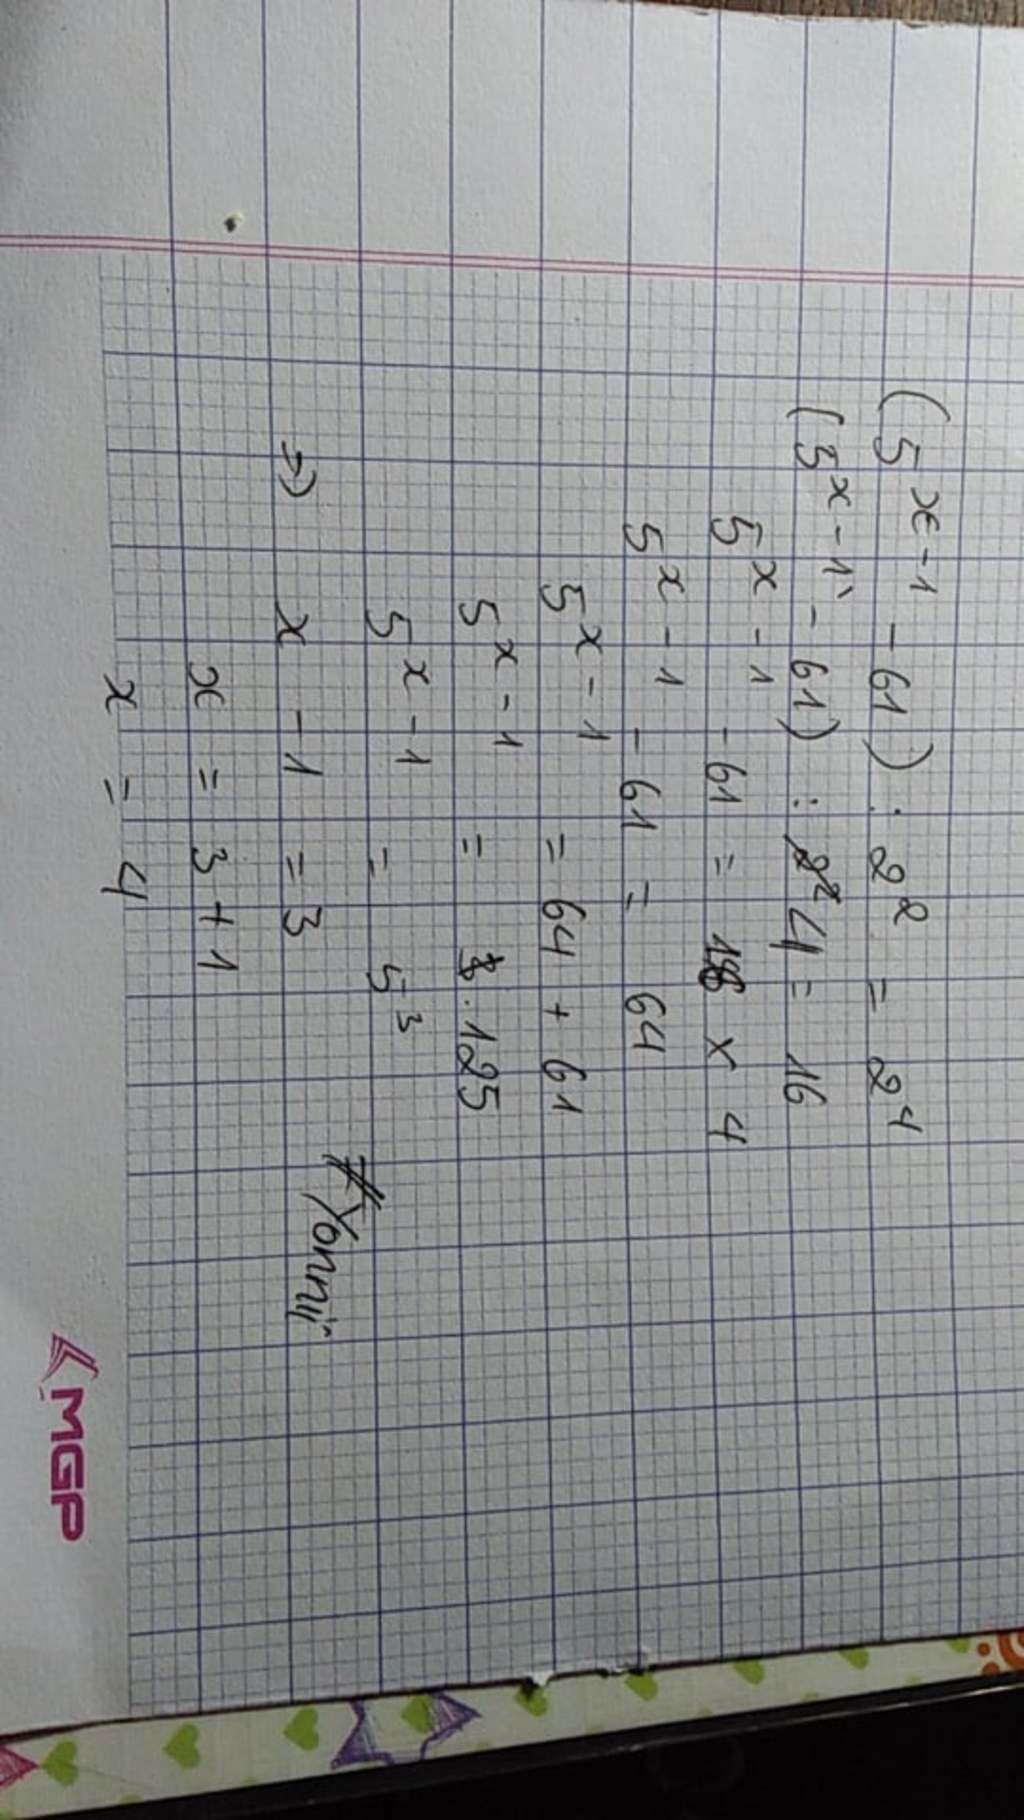 (5^x-1 - 61) : 2^2 = 2^4
(5^x-1 - 61) : 4 = 16
5^x-1 - 61 = 16 x 4
5^x-1 - 61 = 64
5^x-1 = 64 + 61
5^x-1 = 125
5^x-1 = 5^3
=> x - 1 = 3
x = 3 + 1
x = 4
#Yonnii
MGP